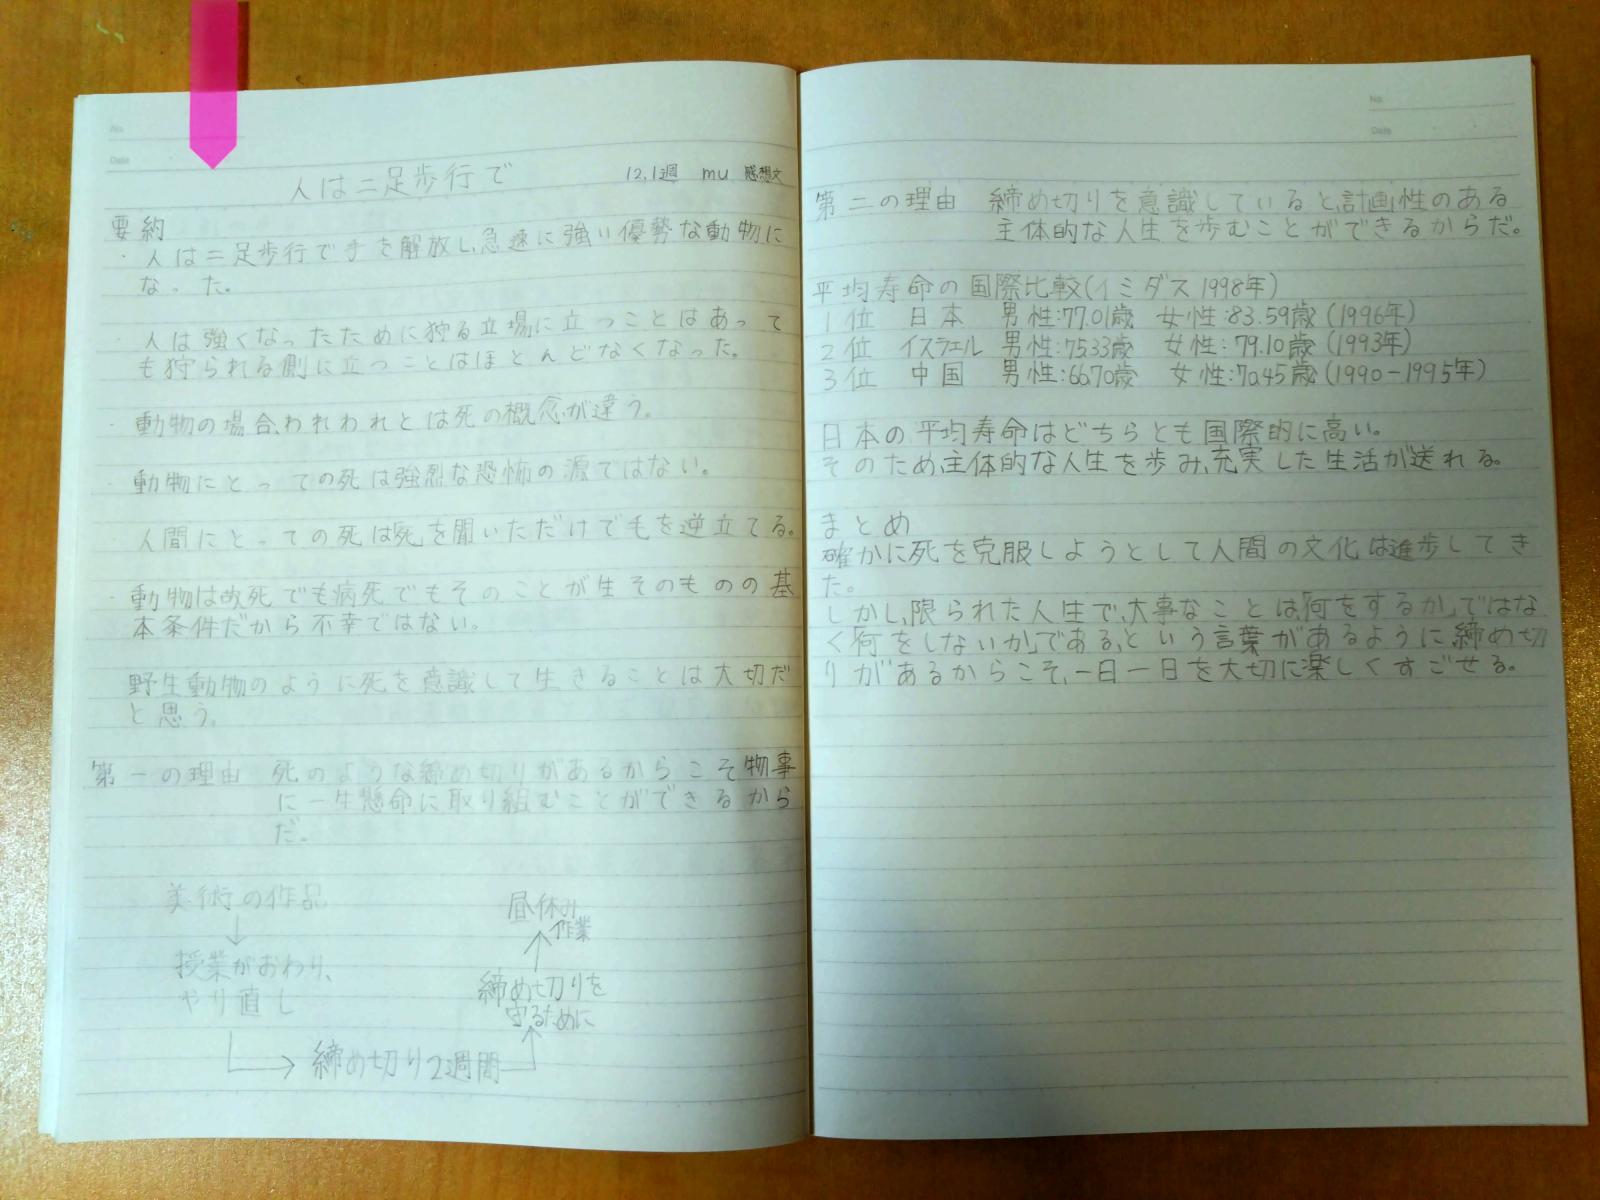 No.
Date
人は二足歩行で 12.1週 mu 感想文
要約
・人は二足歩行で手を解放し、急速に強い優勢な動物に
なった。
・人は強くなったために狩る立場に立つことはあって
も狩られる側に立つことはほとんどなくなった。
・動物の場合、われわれとは死の概念が違う。
・動物にとっての死は強烈な恐怖の源ではない。
・人間にとっての死は「死」を聞いただけで毛を逆立てる。
・動物は故死でも病死でもそのことが生そのものの基
本条件だから不幸ではない。
野生動物のように死を意識して生きることは大切だ
と思う。
第一の理由 死のような締め切りがあるからこそ物事
に一生懸命に取り組むことができるから
だ。
美術の作品
↓
授業がおわり、
やり直し
→ 締め切り2週間
締め切りを
守るために
↑
昼休み
作業
No.
Date
第二の理由 締め切りを意識していると、計画性のある
主体的な人生を歩むことができるからだ。
平均寿命の国際比較(イミダス1998年)
1位 日本 男性:77.01歳 女性:83.59歳(1996年)
2位 イスラエル 男性:75.33歳 女性:79.10歳(1993年)
3位 中国 男性:66.70歳 女性:70.45歳(1990-1995年)
日本の平均寿命はどちらとも国際的に高い。
そのため、主体的な人生を歩み、充実した生活が送れる。
まとめ
確かに死を克服しようとして人間の文化は進歩してき
た。
しかし、限られた人生で、大事なことは、「何をするか」ではな
く「何をしないか」である、という言葉があるように締め切
りがあるからこそ、一日一日を大切に楽しくすごせる。